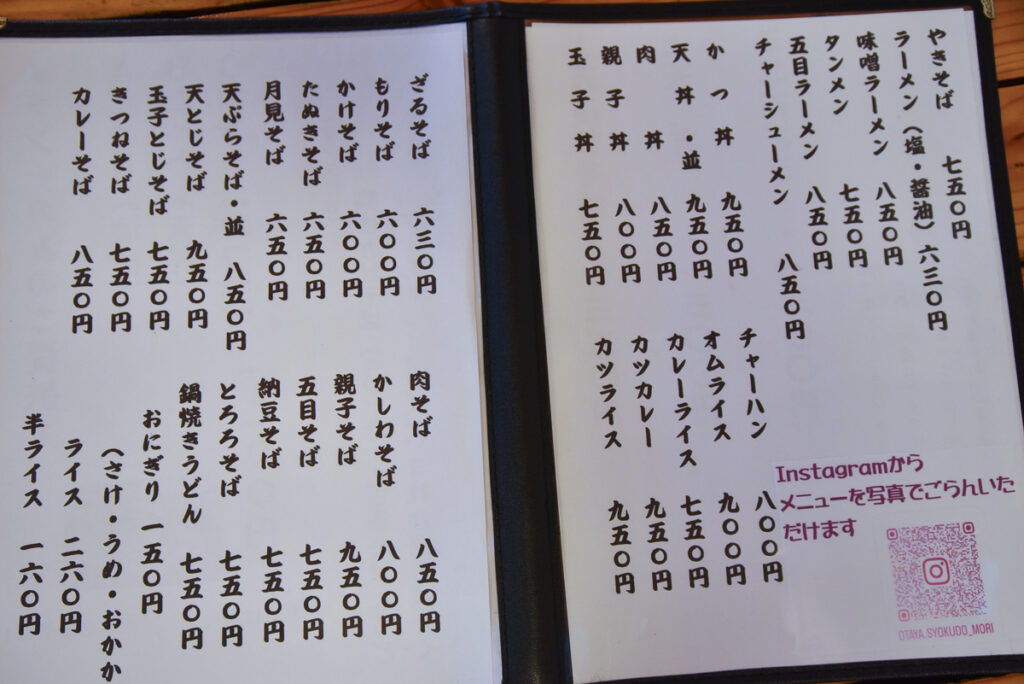 やきそば 七五〇円
ラーメン(塩・醤油)六三〇円
味噌ラーメン 八五〇円
タンメン 七五〇円
五目ラーメン 八五〇円
チャーシューメン 八五〇円
かつ丼 九五〇円
天丼・並 九五〇円
肉丼 八五〇円
親子丼 八〇〇円
玉子丼 七五〇円
チャーハン 八〇〇円
オムライス 九〇〇円
カレーライス 七五〇円
カツカレー 九五〇円
カツライス 九五〇円
Instagramから
メニューを写真でごらんいた
だけます
OTAYA.SYOKUDO_MORI
ざるそば 六三〇円
もりそば 六〇〇円
かけそば 六〇〇円
たぬきそば 六五〇円
月見そば 六五〇円
天ぷらそば・並 八五〇円
天とじそば 九五〇円
玉子とじそば 七五〇円
きつねそば 七五〇円
カレーそば 八五〇円
肉そば 八五〇円
かしわそば 八〇〇円
親子そば 九五〇円
五目そば 七五〇円
納豆そば 七五〇円
とろろそば 七五〇円
鍋焼きうどん 七五〇円
おにぎり 一五〇円
(さけ・うめ・おかか
ライス 二六〇円
半ライス 一六〇円